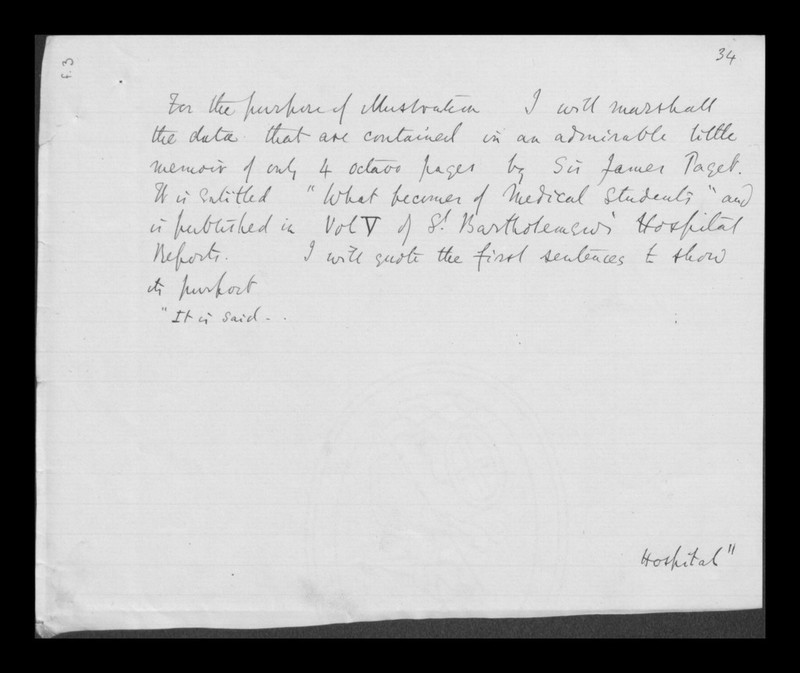 34
f.3
For the purpose of illustration I will marshall
the data that are contained in an admirable little
memoir of only 4 octavo pages by Sir James Paget.
It is entitled "What becomes of Medical Students" and
is published in Vol V of St Bartholemew's Hospital
Reports. I will quote the first sentences to show
its purport
"It is said..
Hospital"